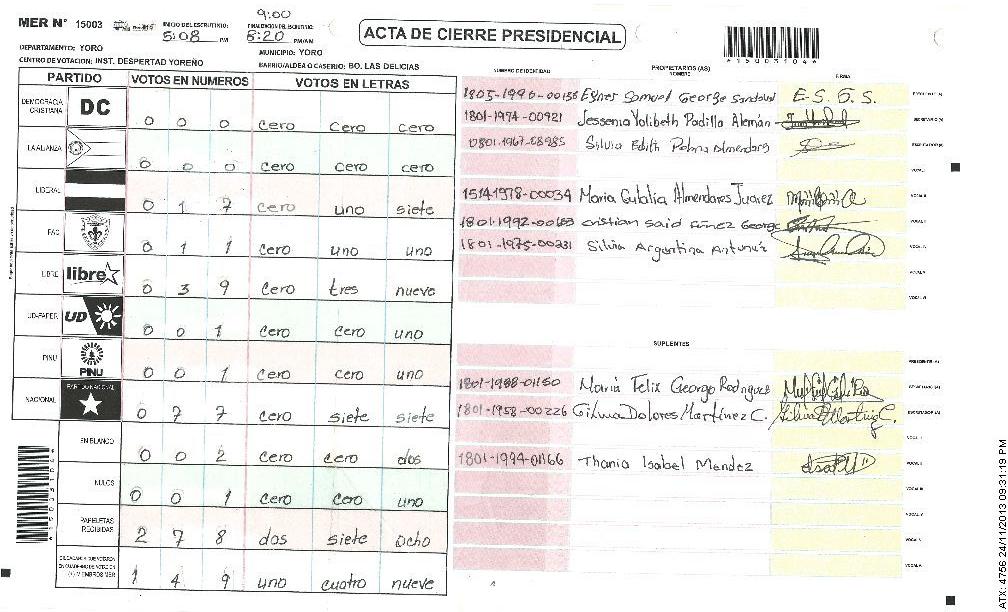 MER N° 15003
INICIO DEL ESCRUTINIO:
5:08 PM
9:00
FINALIZACION DEL ESCRUTINIO:
8:20 PM/AM
ACTA DE CIERRE PRESIDENCIAL
*15003104*
DEPARTAMENTO: YORO
MUNICIPIO: YORO
CENTRO DE VOTACION: INST. DESPERTAD YOREÑO
BARRIO/ALDEA O CASERIO: BO. LAS DELICIAS
PARTIDO VOTOS EN NUMEROS VOTOS EN LETRAS
DEMOCRACIA CRISTIANA DC 0 0 0 cero cero cero
LA ALIANZA 0 0 0 cero cero cero
LIBERAL 0 1 7 cero uno siete
PAC 0 1 1 cero uno uno
LIBRE libre 0 3 9 cero tres nueve
UD-FAPER UD 0 0 1 cero cero uno
PINU PINU 0 0 1 cero cero uno
NACIONAL PARTIDO NACIONAL 0 7 7 cero siete siete
EN BLANCO 0 0 2 cero cero dos
NULOS 0 0 1 cero cero uno
PAPELETAS RECIBIDAS 2 7 8 dos siete ocho
CIUDADANOS QUE VOTARON EN CUADERNO DE VOTACION (+) MIEMBROS MER 1 4 9 uno cuatro nueve
NUMERO DE IDENTIDAD PROPIETARIOS (AS) NOMBRE FIRMA
Samuel George Sandoval E.S.G.S. PRESIDENTE (A)
1801-1974-00921 Jessenia Yolibeth Padilla Alemán SECRETARIO (A)
0801-1967-08985 Silvia Edith ESCRUTADOR (A)
VOCAL I
1514-1978-00034 Maria Eulalia Almendares Juarez VOCAL II
cristian said George VOCAL III
1801-1975-00231 Silvia Argentina Antunez VOCAL IV
VOCAL V
VOCAL VI
SUPLENTES
PRESIDENTE (A)
1801-1988-01150 Maria Felix George Rodriguez SECRETARIO (A)
1801-1958-00226 Gilma Dolores Martínez C. ESCRUTADOR (A)
VOCAL I
1801-1994-01166 Thania Isabel Mendez VOCAL II
VOCAL III
VOCAL IV
VOCAL V
VOCAL VI
*15003104*
ATX: 4756 24/11/2013 09:31:19 PM